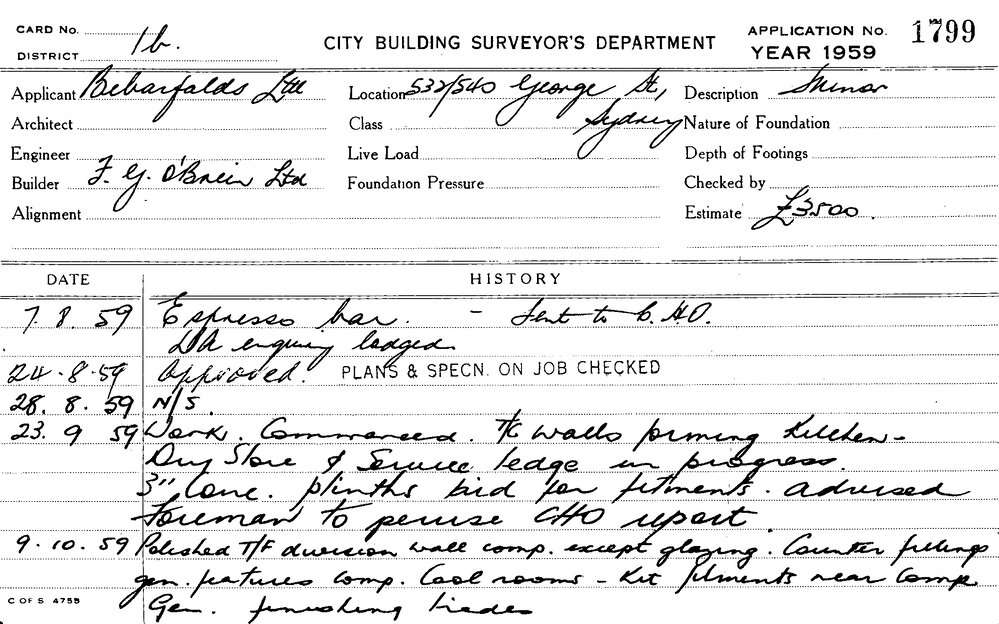 CARD No.
1b.
DISTRICT
CITY BUILDING SURVEYOR'S DEPARTMENT
APPLICATION No. 1799
YEAR 1959
Applicant Bebarfalds Ltd
Location 532/540 George St,
Sydney
Description Minor
Architect
Class
Nature of Foundation
Engineer
Live Load
Depth of Footings
Builder F. G. O'Brien Ltd
Foundation Pressure
Checked by
Alignment
Estimate £3500.
DATE HISTORY
7. 8. 59 Espresso bar. - Sent to C.H.O.
DA enquiry lodged
24-8-59 Approved. PLANS & SPECN. ON JOB CHECKED
28. 8. 59 N/S.
23. 9 59 Work. Commenced. T/C walls forming Kitchen-
Dry Store & Service ledge in progress.
3" Conc. plinths laid for fitments. advised
foreman to peruse CHO report.
9. 10. 59 Polished T/F division wall comp. except glazing. Counter fittings
gen. features comp. Cool rooms - Kit fitments near Comp
Gen. finishing trades
C OF S 4755